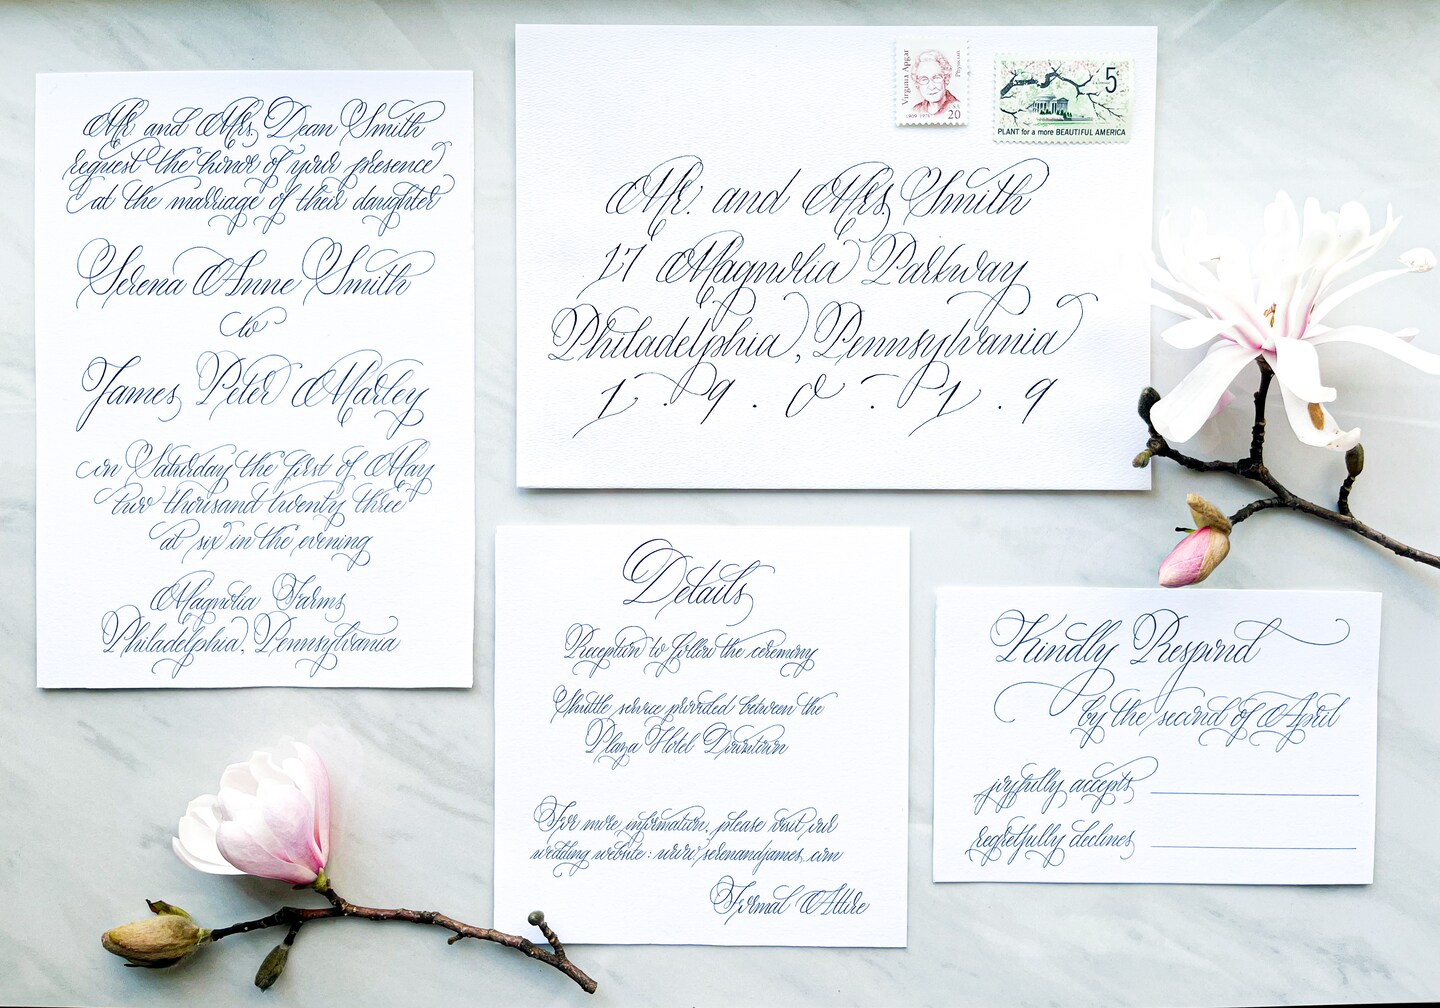 Mr and Mrs Dean Smith
request the honor of your presence
at the marriage of their daughter
Serena Anne Smith
to
James Peter Marley
on Saturday the first of May
two thousand twenty three
at six in the evening
Magnolia Farms
Philadelphia, Pennsylvania
Virginia Apgar
Physician
1909-1974
USA
20
5
PLANT for a more BEAUTIFUL AMERICA
Mr. and Mrs Smith
17 Magnolia Parkway
Philadelphia, Pennsylvania
1 . 9 . 0 . 1 . 9
Details
Reception to follow the ceremony
Shuttle service provided between the
Plaza Hotel Downtown
For more information, please visit our
wedding website: www.serenandjames.com
Formal Attire
Kindly Respond
by the second of April
joyfully accepts
regretfully declines